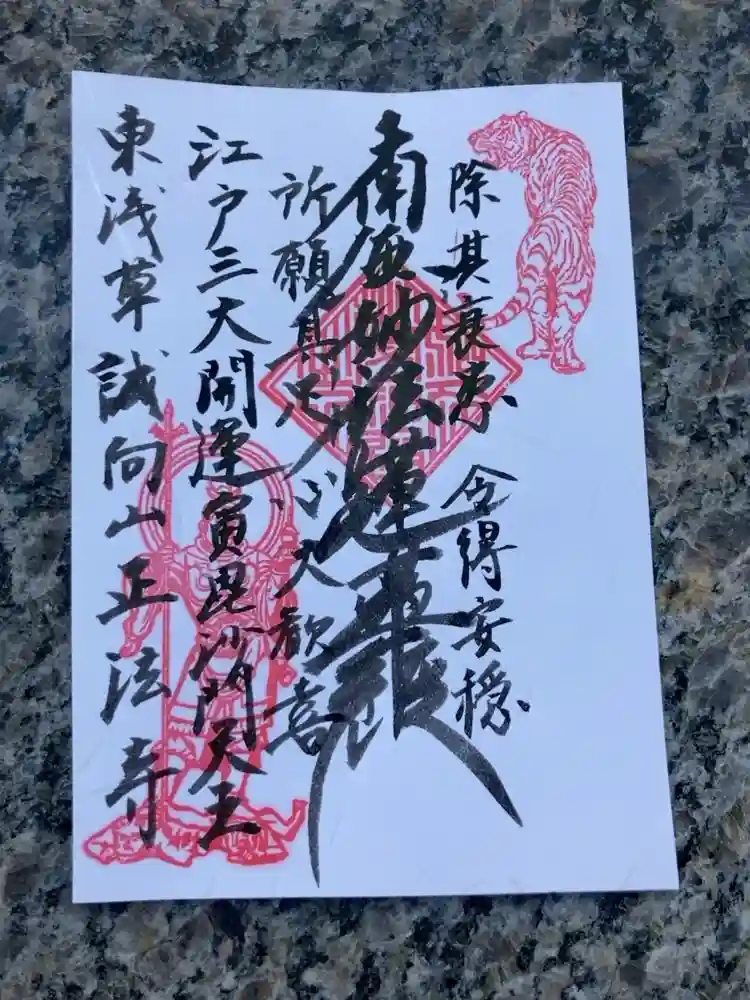 除其衰患 令得安穏
南無妙法蓮華経
所願具足 心大歓喜
江戸三大開運寅毘沙門天王
東浅草誠向山正法寺